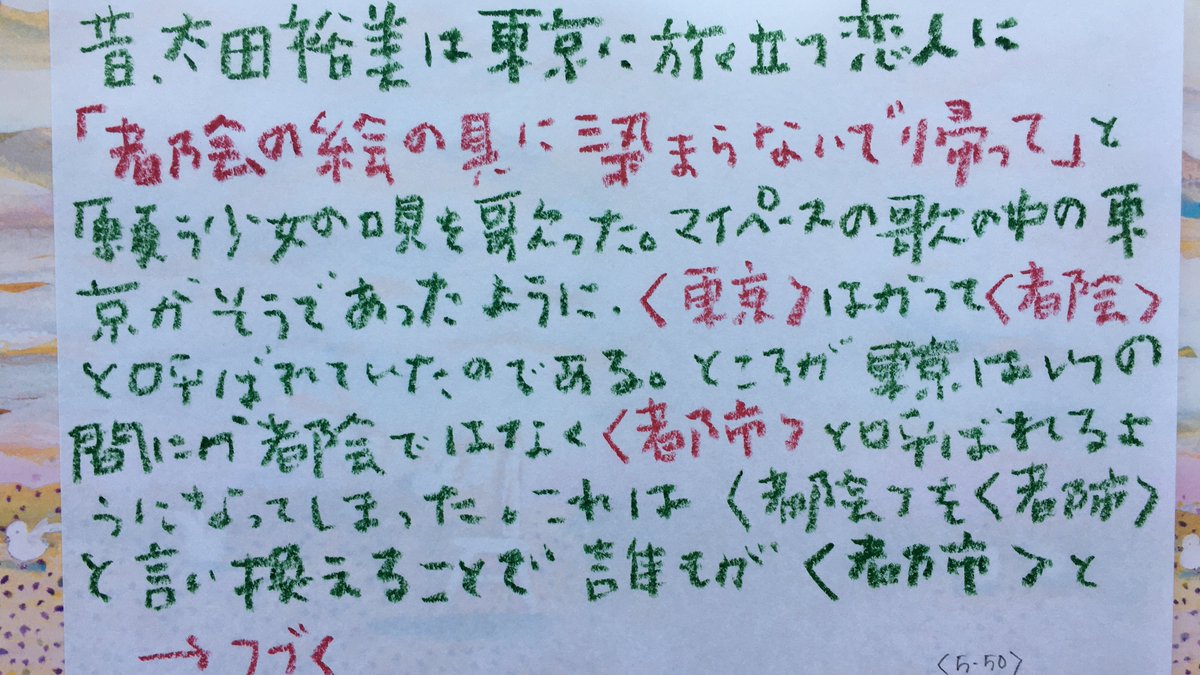 昔、太田裕美は東京に旅立つ恋人に
「都会の絵の具に染まらないで帰って」と
願う少女の唄を歌った。マイペースの歌の中の東
京がそうであったように、〈東京〉はかつて〈都会〉
と呼ばれていたのである。ところが東京はいつの
間にか都会ではなく〈都市〉と呼ばれるよ
うになってしまった。これは〈都会〉を〈都市〉
と言い換えることで誰もが〈都市〉と
→つづく
〈5-50〉